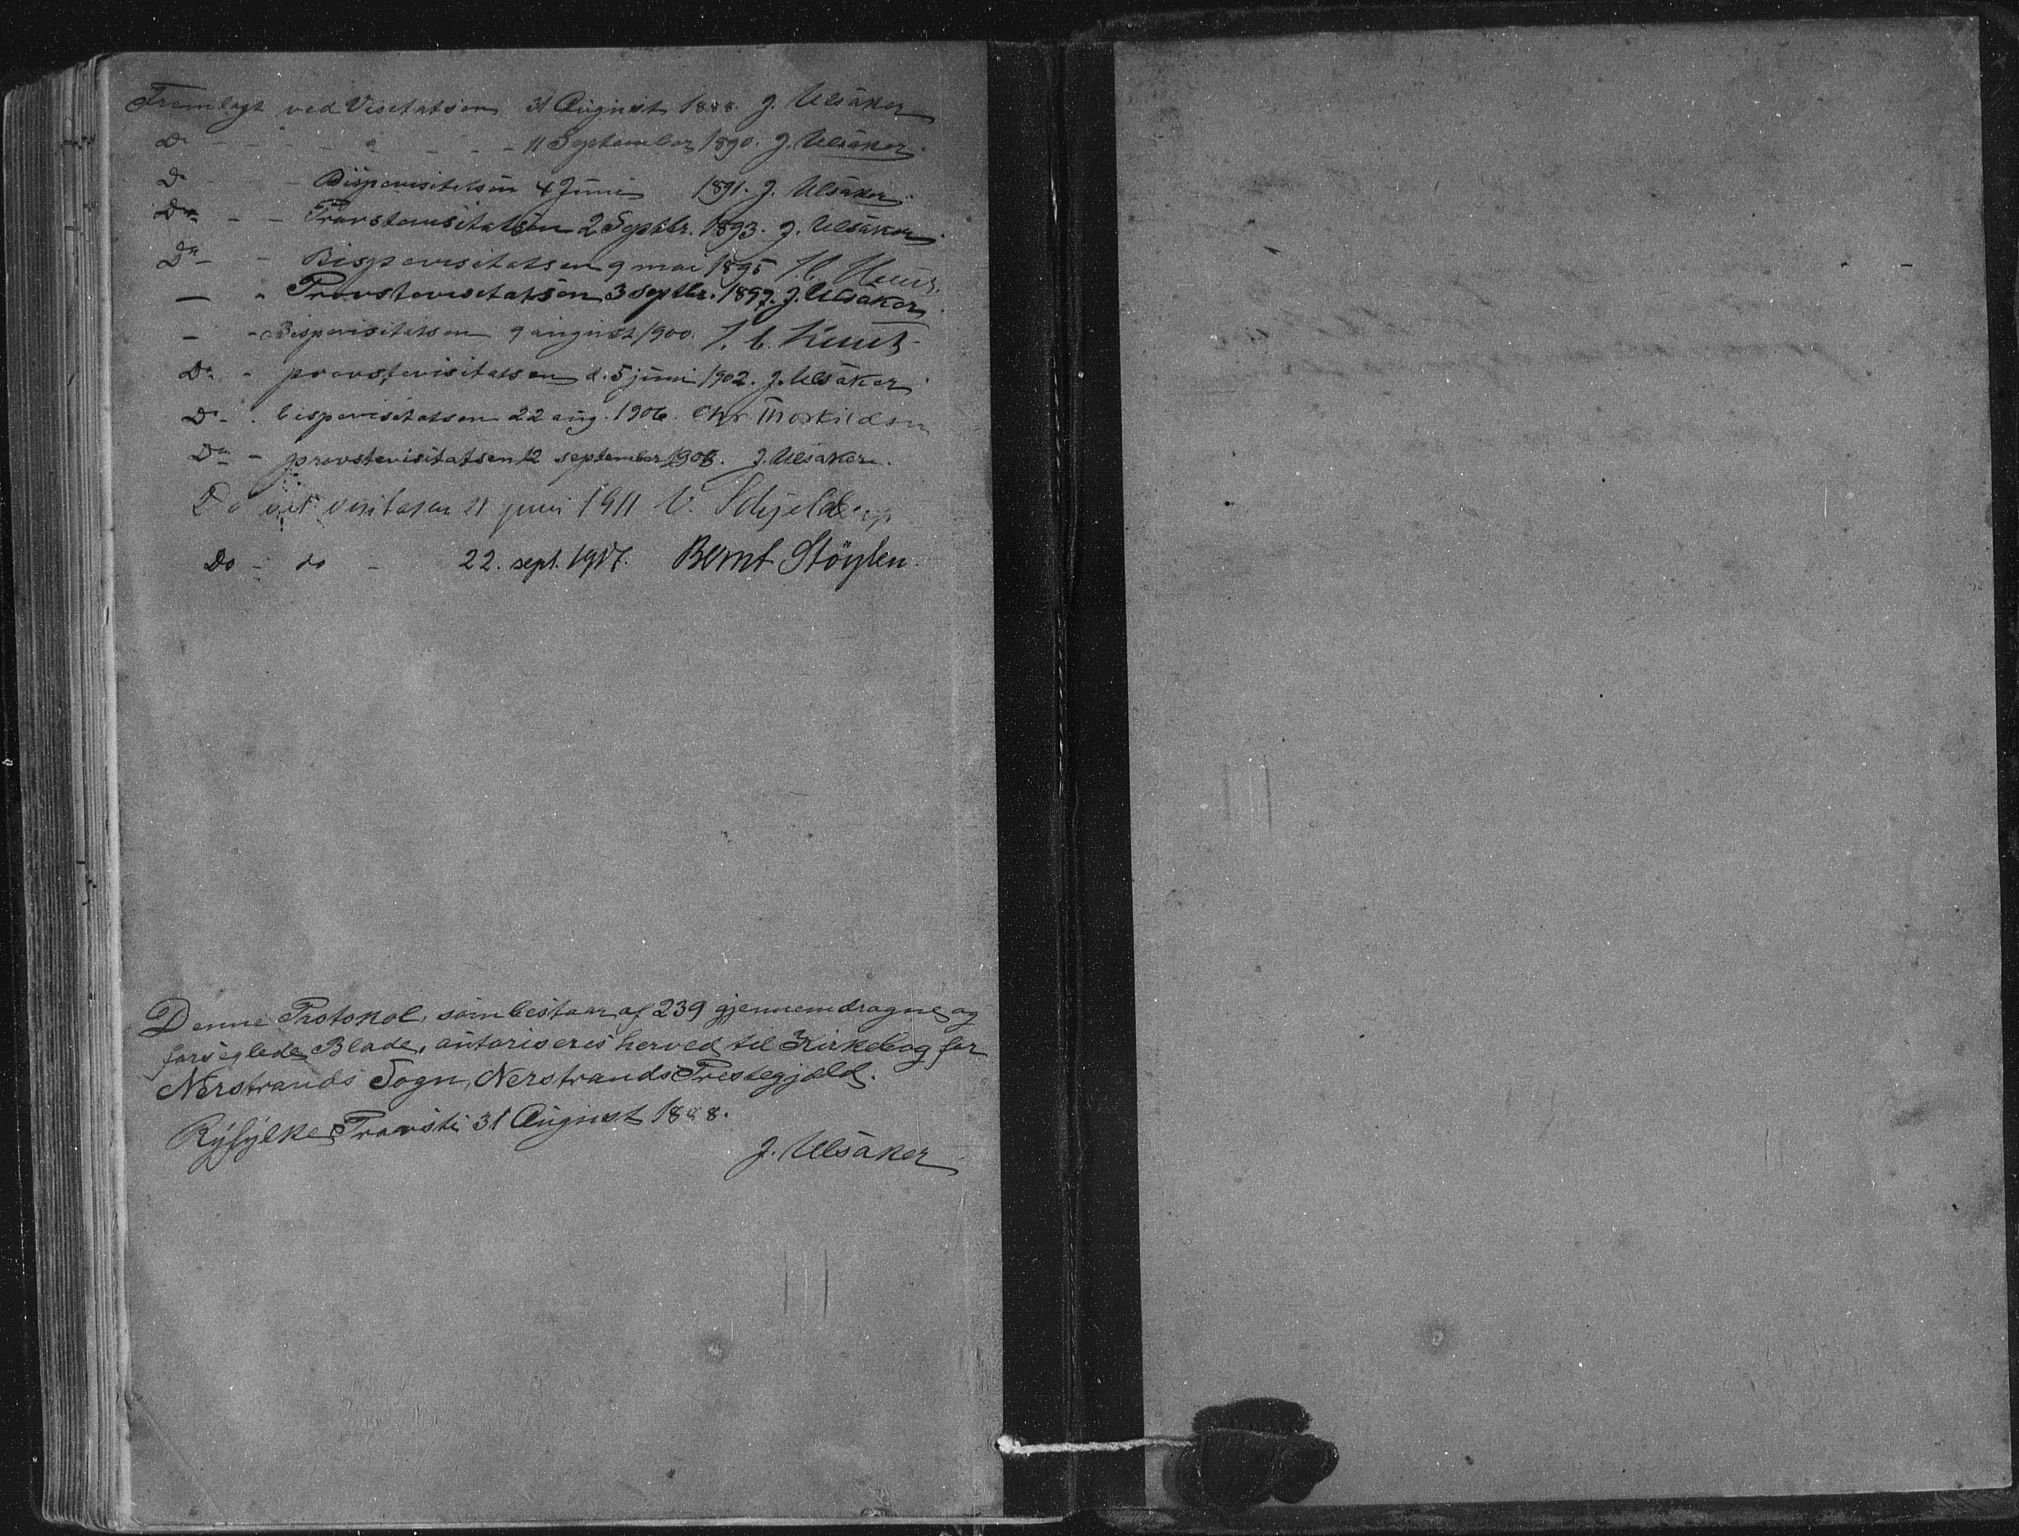 Fremlagt ved Visitatsen 31 August 1888. J. Ulsåker
Do - - - " - - - 11 September 1890. J. Ulsåker.
Do - - Bispevisitatsen 4 Juni 1891. J. Ulsåker.
Do - - Provstevisitatsen 2 Septbr. 1893. J. Ulsåker.
Do - - Bispevisitatsen 9 mai 1895
— - Provstevisitatsen 3 Septbr. 1897. J. Ulsåker.
- - Bispevisitatsen 9 august 1900.
Do - provstevisitatsen d. 5 juni 1902. J. Ulsåker.
Do - bispevisitatsen 22 aug. 1906. Chr Thorkildsen
Do - provstevisitatsen 12 september 1908. J. Ulsåker.
Do ved visitasen 21 juni 1911 V. Schjelderup
Do - do - 22. sept. 1917. Bernt Støylen.
Denne Protokol, som bestaar af 239 gjennemdragne og
forseglede Blade, autoriseres herved til Kirkebog for
Nerstrands Sogn, Nerstrands Prestegjæld.
Ryfylke Provsti 31 August 1888.
J. Ulsåker